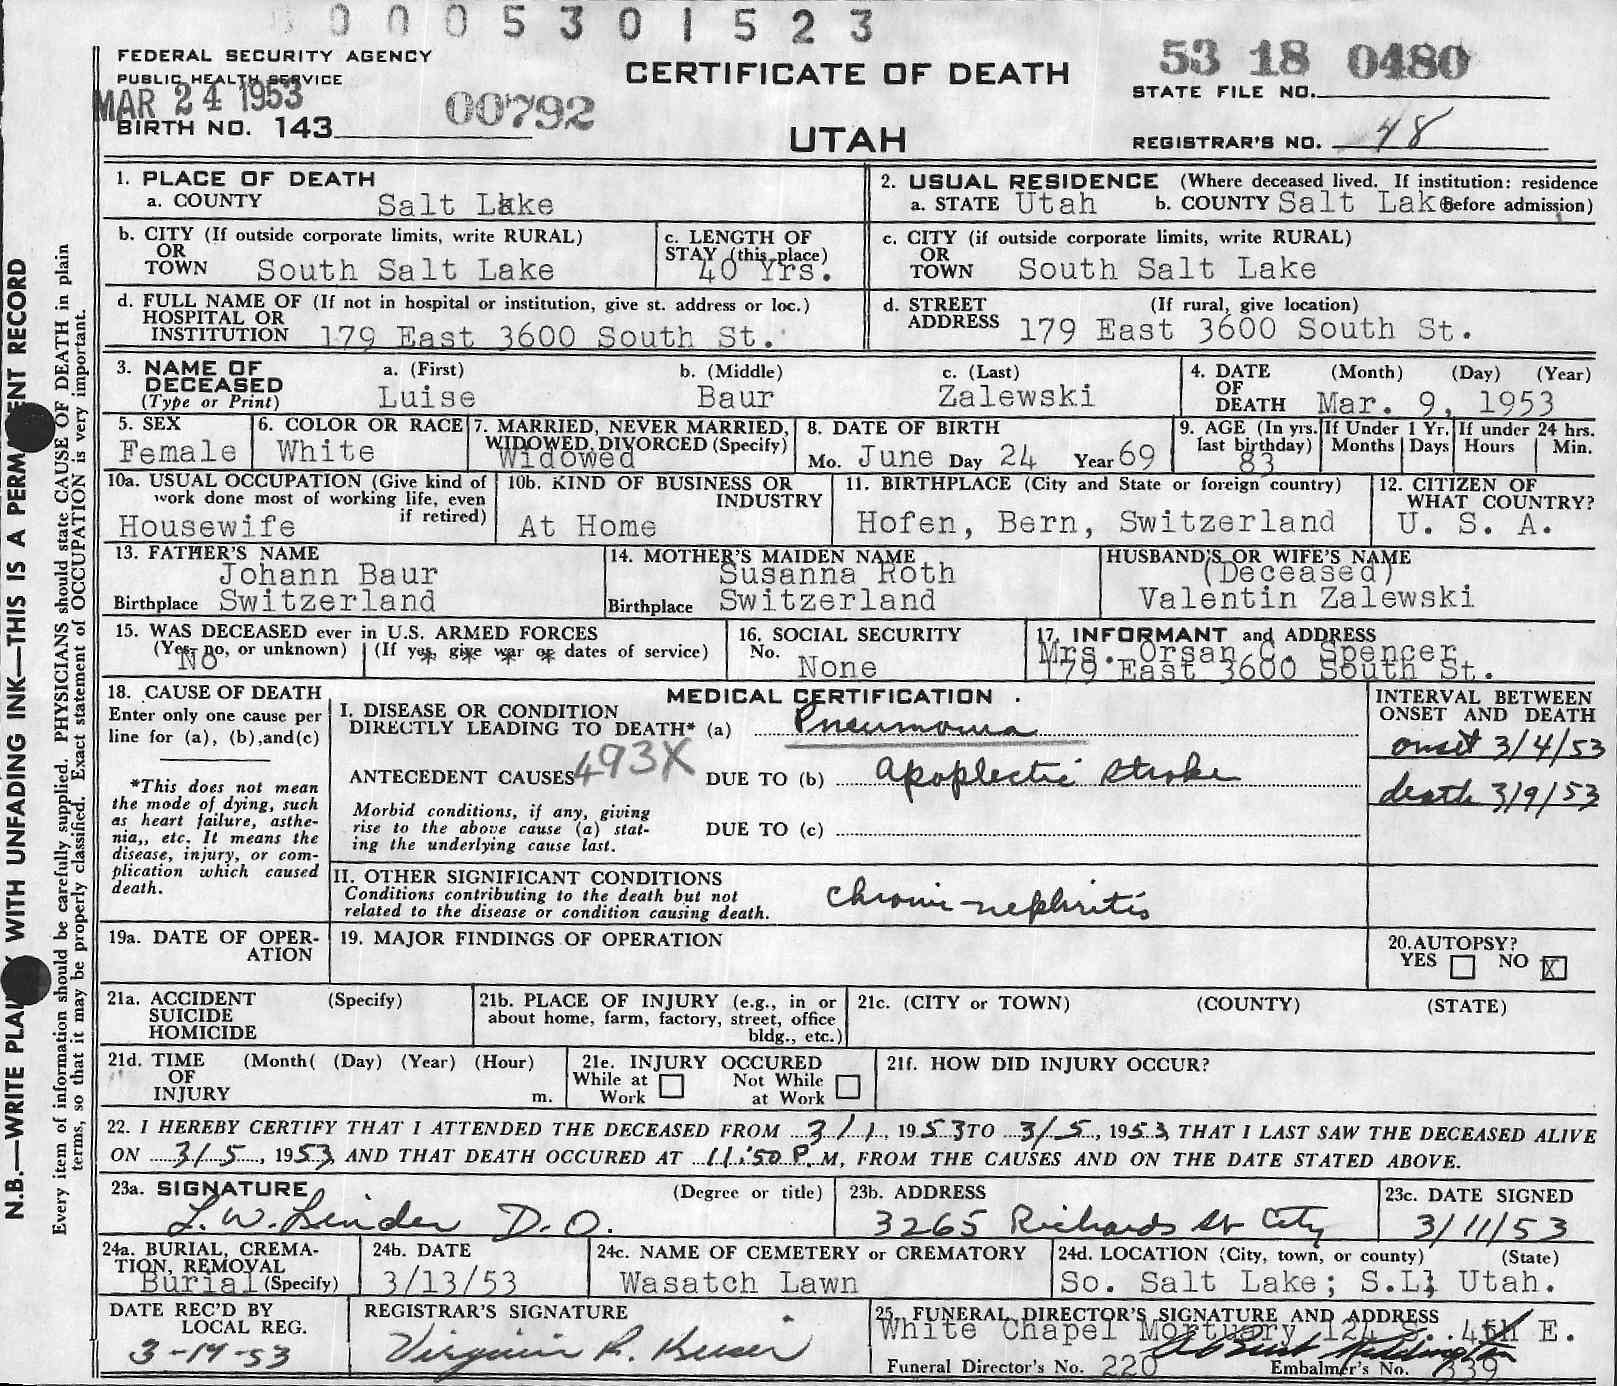 0005301523
FEDERAL SECURITY AGENCY
PUBLIC HEALTH SERVICE
MAR 24 1953
BIRTH NO. 143
00792
CERTIFICATE OF DEATH
UTAH
53 18 0480
STATE FILE NO.
REGISTRAR'S NO. 48
N.B.—WRITE PLAI WITH UNFADING INK—THIS IS A PERM ENT RECORD
Every item of information should be carefully supplied. PHYSICIANS should state CAUSE OF DEATH in plain
terms, so that it may be properly classified. Exact statement of OCCUPATION is very important.
1. PLACE OF DEATH
a. COUNTY Salt Lake
2. USUAL RESIDENCE (Where deceased lived. If institution: residence
a. STATE Utah b. COUNTY Salt Lake before admission)
b. CITY (If outside corporate limits, write RURAL)
OR
TOWN South Salt Lake
c. LENGTH OF
STAY (this place)
40 Yrs.
c. CITY (if outside corporate limits, write RURAL)
OR
TOWN South Salt Lake
d. FULL NAME OF (If not in hospital or institution, give st. address or loc.)
HOSPITAL OR
INSTITUTION 179 East 3600 South St.
d. STREET (If rural, give location)
ADDRESS 179 East 3600 South St.
3. NAME OF DECEASED
(Type or Print)
a. (First) b. (Middle) c. (Last)
Luise Baur Zalewski
4. DATE OF DEATH (Month) (Day) (Year)
Mar. 9, 1953
5. SEX
Female
6. COLOR OR RACE
White
7. MARRIED, NEVER MARRIED,
WIDOWED, DIVORCED (Specify)
Widowed
8. DATE OF BIRTH
Mo. June Day 24 Year 69
9. AGE (In yrs. last birthday)
83
If Under 1 Yr.
Months Days
If under 24 hrs.
Hours Min.
10a. USUAL OCCUPATION (Give kind of
work done most of working life, even
if retired)
Housewife
10b. KIND OF BUSINESS OR
INDUSTRY
At Home
11. BIRTHPLACE (City and State or foreign country)
Hofen, Bern, Switzerland
12. CITIZEN OF
WHAT COUNTRY?
U. S. A.
13. FATHER'S NAME
Johann Baur
Birthplace Switzerland
14. MOTHER'S MAIDEN NAME
Susanna Roth
Birthplace Switzerland
HUSBAND'S OR WIFE'S NAME
(Deceased)
Valentin Zalewski
15. WAS DECEASED ever in U.S. ARMED FORCES
(Yes, no, or unknown) (If yes, give war or dates of service)
No
16. SOCIAL SECURITY
No.
None
17. INFORMANT and ADDRESS
Mrs. Orsan C. Spencer
179 East 3600 South St.
18. CAUSE OF DEATH
Enter only one cause per
line for (a), (b),and(c)
*This does not mean
the mode of dying, such
as heart failure, asthe-
nia,, etc. It means the
disease, injury, or com-
plication which caused
death.
MEDICAL CERTIFICATION
I. DISEASE OR CONDITION
DIRECTLY LEADING TO DEATH* (a) Pneumonia
ANTECEDENT CAUSES 493X DUE TO (b) Apoplectic Stroke
Morbid conditions, if any, giving
rise to the above cause (a) stat-
ing the underlying cause last.
DUE TO (c)
II. OTHER SIGNIFICANT CONDITIONS
Conditions contributing to the death but not
related to the disease or condition causing death.
Chronic nephritis
INTERVAL BETWEEN
ONSET AND DEATH
onset 3/4/53
death 3/9/53
19a. DATE OF OPER-
ATION
19. MAJOR FINDINGS OF OPERATION
20.AUTOPSY?
YES NO X
21a. ACCIDENT (Specify)
SUICIDE
HOMICIDE
21b. PLACE OF INJURY (e.g., in or
about home, farm, factory, street, office
bldg., etc.)
21c. (CITY or TOWN) (COUNTY) (STATE)
21d. TIME (Month( (Day) (Year) (Hour)
OF
INJURY m.
21e. INJURY OCCURED
While at Work Not While at Work
21f. HOW DID INJURY OCCUR?
22. I HEREBY CERTIFY THAT I ATTENDED THE DECEASED FROM 3/1, 1953 TO 3/5, 1953, THAT I LAST SAW THE DECEASED ALIVE
ON 3/5, 1953, AND THAT DEATH OCCURED AT 11:50 P.M, FROM THE CAUSES AND ON THE DATE STATED ABOVE.
23a. SIGNATURE (Degree or title)
L. W. Linder D.O.
23b. ADDRESS
3265 Richards St City
23c. DATE SIGNED
3/11/53
24a. BURIAL, CREMA-
TION, REMOVAL
Burial (Specify)
24b. DATE
3/13/53
24c. NAME OF CEMETERY or CREMATORY
Wasatch Lawn
24d. LOCATION (City, town, or county) (State)
So. Salt Lake; S.L; Utah.
DATE REC'D BY
LOCAL REG.
3-19-53
REGISTRAR'S SIGNATURE
Virginia R.
25. FUNERAL DIRECTOR'S SIGNATURE AND ADDRESS
White Chapel Mortuary 124 S. 4th E.
Funeral Director's No. 220
Embalmer's No. 339